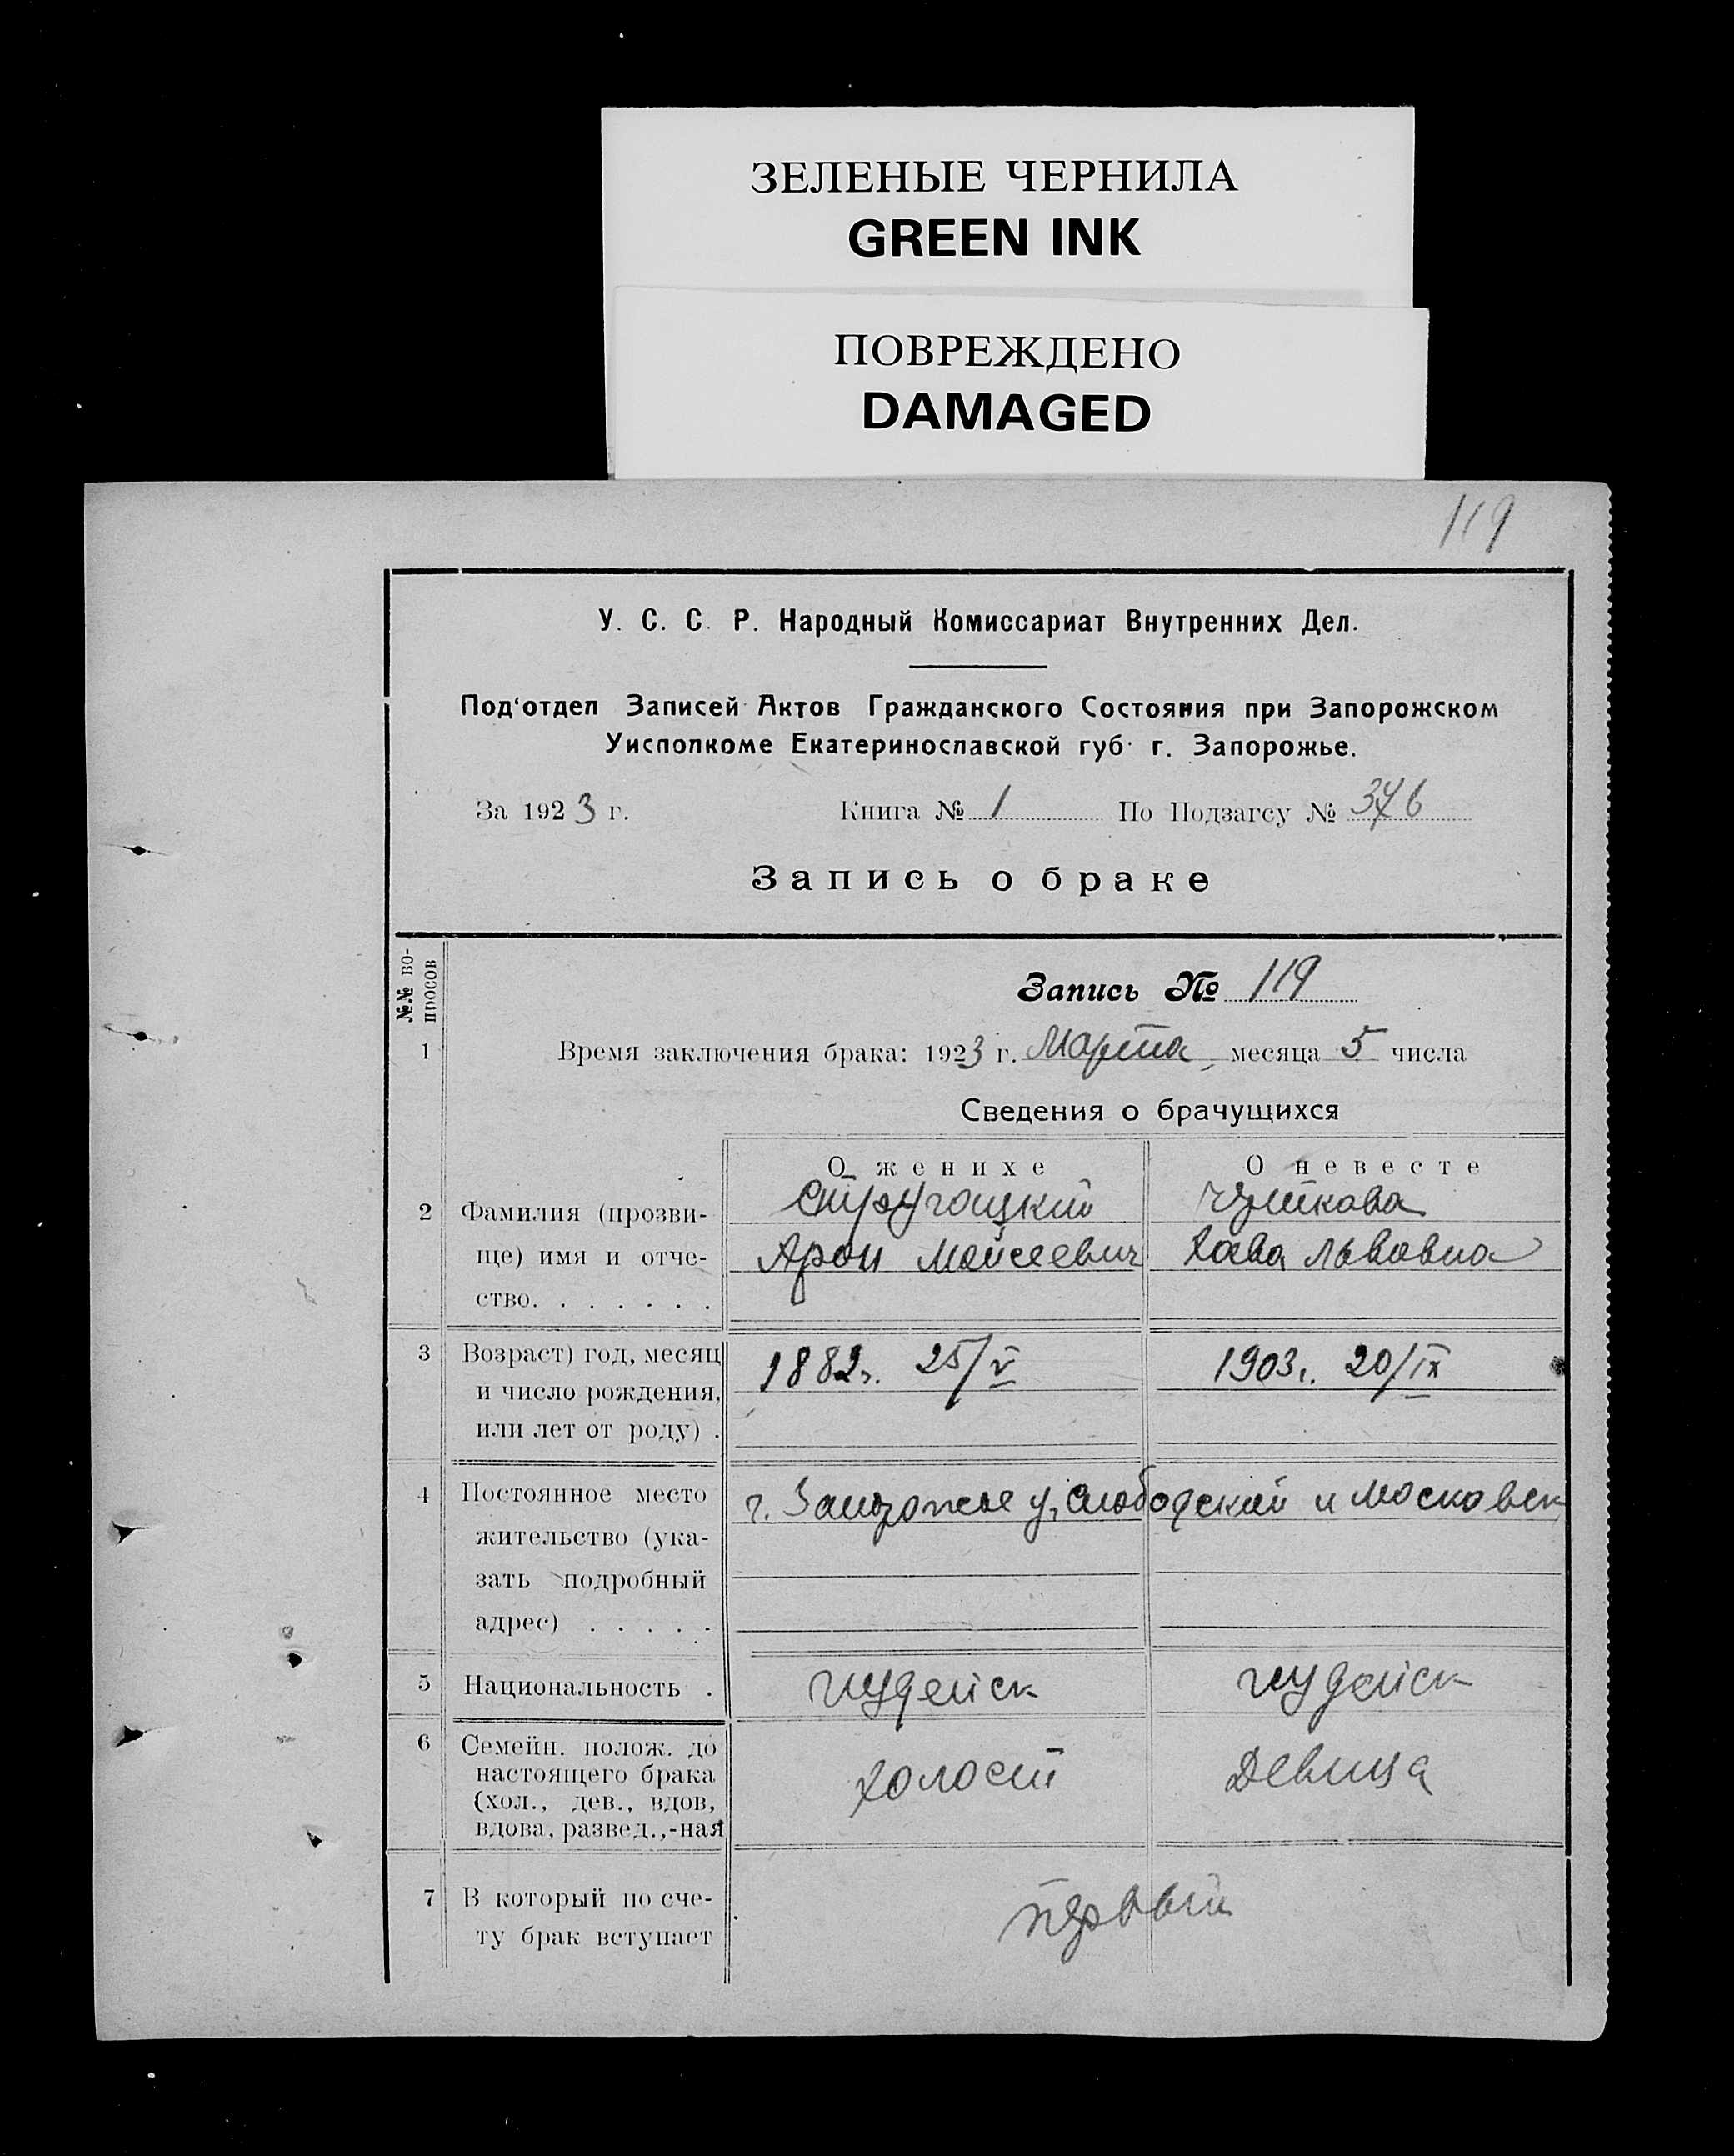 ЗЕЛЕНЫЕ ЧЕРНИЛА
GREEN INK
ПОВРЕЖДЕНО
DAMAGED
119
У. С. С. Р. Народный Комиссариат Внутренних Дел.
Под'отдел Записей Актов Гражданского Состояния при Запорожском
Уисполкоме Екатеринославской губ. г. Запорожье.
За 1923 г. Книга № 1 По Подзагсу № 376
Запись о браке
№№ во-
просов
Запись № 119
1 Время заключения брака: 1923 г. Марта месяца 5 числа
Сведения о брачущихся
О женихе О невесте
2 Фамилия (прозви- Стругацкий
ще) имя и отче- Арон Мойсеевич Хава Львовна
ство. . . . . . .
3 Возраст) год, месяц 1882г. 25/V 1903г. 20/IX
и число рождения,
или лет от роду) .
4 Постоянное место г. Запорожье у. Слободской и Московск
жительство (ука-
зать подробный
адрес) . . . . .
5 Национальность . иудейск иудейск
6 Семейн. полож. до
настоящего брака холост Девица
(хол., дев., вдов,
вдова, развед.,-ная
7 В который по сче- первый
ту брак вступает